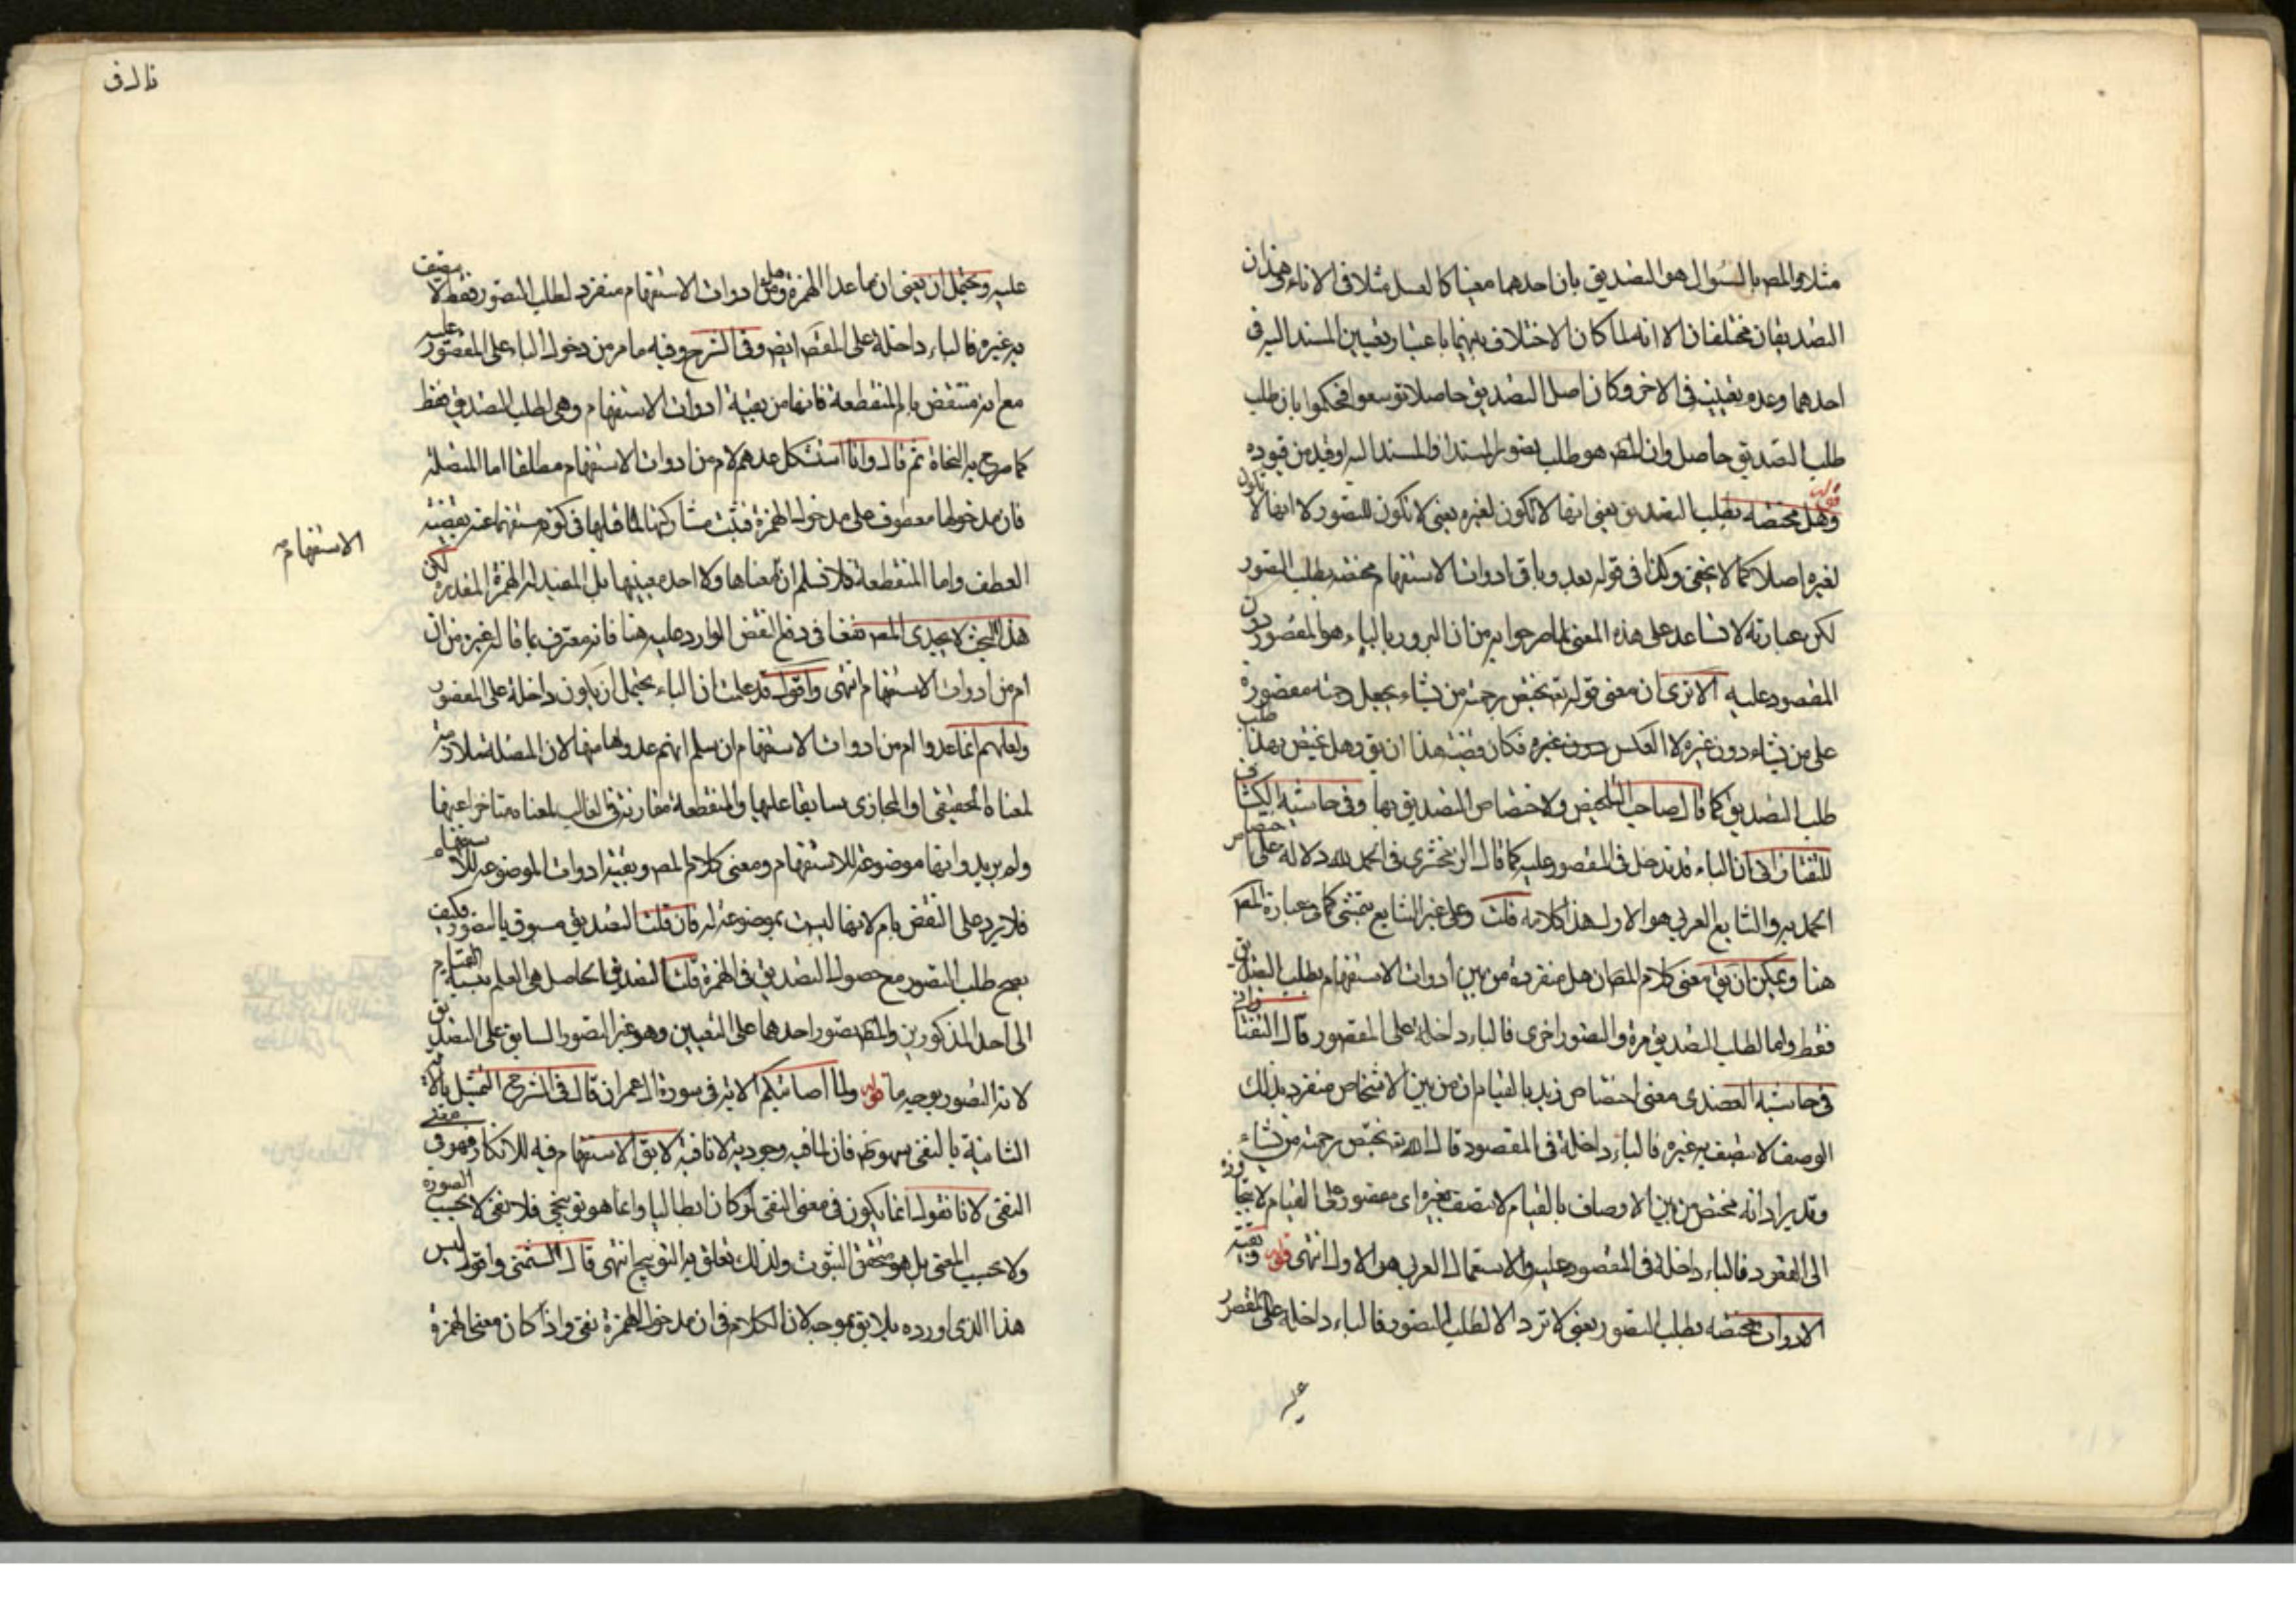 مثلا والمص بالسؤال هو التصديق بان احدهما معينا كالعسل مثلا في الاناء وهذان
التصديقان مختلفان الا انه لما كان الاختلاف بينهما باعتبار تعيين المسند اليه في
احدهما وعدم تعيينه في الاخر وكان اصل التصديق حاصلا توسعوا فحكموا بان طلب
طلب التصديق حاصل وان المط هو طلب تصور المسند او المسند اليه او قيد من قيوده
قوله وهل مختصه بطلب التصديق يعني انها لا تكون لغيره يعني لا تكون للتصور لا انها لا تكون
لغيره اصلا كما لا يخفى وكذا في قوله بعد وباقي ادوات الاستفهام مختصه بطلب التصور
لكن عبارته لا تساعد على هذه المعنى لما صرحوا به من ان المجرور بالباء هو المقصور دون
المقصود عليه الا ترى ان معنى قوله تع يختص برحمته من يشاء يجعل رحمته مقصورة
على من يشاء دون غيره لا العكس دون غيره فكان قضية هذا ان يق وهل يختص بهذا طلب
طلب التصديق كما قال صاحب التلخيص ولاختصاص التصديق بها وفي حاشية الكشاف
للتفتازاني ان الباء قد تدخل في المقصور عليه كما قال الزمخشري في الحمد لله دلالة على اختصاص
الحمد به والشايع العربي هو الاول هذا كلامه قلت وعلى غير الشايع يتمشى كلام وعبارة المص
هنا ويمكن ان يق معنى كلام المص ان هل منفردة من بين ادوات الاستفهام بطلب التصديق
فقط وانها لطلب التصديق مرة والتصور اخرى فالباء داخلة على المقصور قال التفتازاني
في حاشية العضدي معنى اختصاص زيد بالقيام انه من بين الاشخاص منفرد بذلك
الوصف لا يتصف به غيره فالباء داخلة في المقصود قال الله تع يختص برحمته من يشاء
وقد يراد انه مختص من بين الاوصاف بالقيام لا يتصف بغيره اى مقصور على القيام لا يتجاوزه
الى القعود فالباء داخلة في المقصور عليه والاستعمال العربي هو الاول انتهى قوله وبقية
الادوات مختصه بطلب التصور يعني لا ترد الا لطلب التصور فالباء داخلة على المقصور
عليه
قال في
عليه ويحتمل ان يعني ان ما عدا الهمزة وهل من ادوات الاستفهام منفرد لطلب التصور فقط لا يتصف
به غيره فالباء داخلة على المقص ايض وفي الشرح وفيه ما مر من دخول الباء على المقصور عليه
مع انه منتقض بام المنقطعة فانها من بقية ادوات الاستفهام وهي لطلب التصديق فقط
كما صرح به النحاة ثم قال وانا استشكل عدهم لام من ادوات الاستفهام مطلقا اما المتصلة
فان مدخولها معطوف على مدخول الهمزة فثبت مشاركتها لما قبلها في كونه مستفهما عنه بقضية
الاستفهام صح
العطف واما المنقطعة فلا نسلم ان معناها ولا احد معنييها بل المفيد له الهمزة المقدرة لكن
هذا البحث لا يجدي المص نفعا في دفع النقض الوارد عليه هنا فانه معترف بما قاله غيره من ان
ام من ادوات الاستفهام انتهى واقول قد علمت ان الباء يحتمل ان يكون داخلة على المقصور
ولعلهم انما عدوا ام من ادوات الاستفهام ان سلم انهم عدوها منها لان المتصلة ملازمة
لمعناه الحقيقي او المجازي سابقا عليها والمنقطعة مقارنة في الغالب لمعناه متاخرا عنها
ولم يريدوا انها موضوعة للاستفهام ومعنى كلام المص وبقية ادوات الموضوعه للاستفهام
فلا يرد على النقض بام لانها ليست بموضوعة له فان قلت التصديق مسبوق بالتصور فكيف
يصح طلب التصور مع حصول التصديق في الهمزة قلت التصديق الحاصل هو العلم بنسبة القيام
الى احد المذكورين والمط تصور احدهما على التعيين وهو غير التصور السابق على التصديق
لانه التصور بوجه ما قوله ولما اصابتكم الاية في سورة ال عمران قال في الشرح التمثيل بالاية
الثانية بالنفي سهو ظ فان المافيه وجودية لا نافية لا يق الاستفهام فيه للانكار فهو في معنى
النفي لانا نقول انما يكون في معنى النفي لو كان ابطاليا وانما هو توبيخي فلا نفي لا بحسب الصورة
ولا بحسب المعنى بل هو متحقق الثبوت ولذلك تعلق به التوبيخ انتهى قال الشمني واقول ليس
هذا الذي اورده بلايق بموجه لان الكلام في ان مدخول الهمزة نفي واذا كان معنى الهمزة